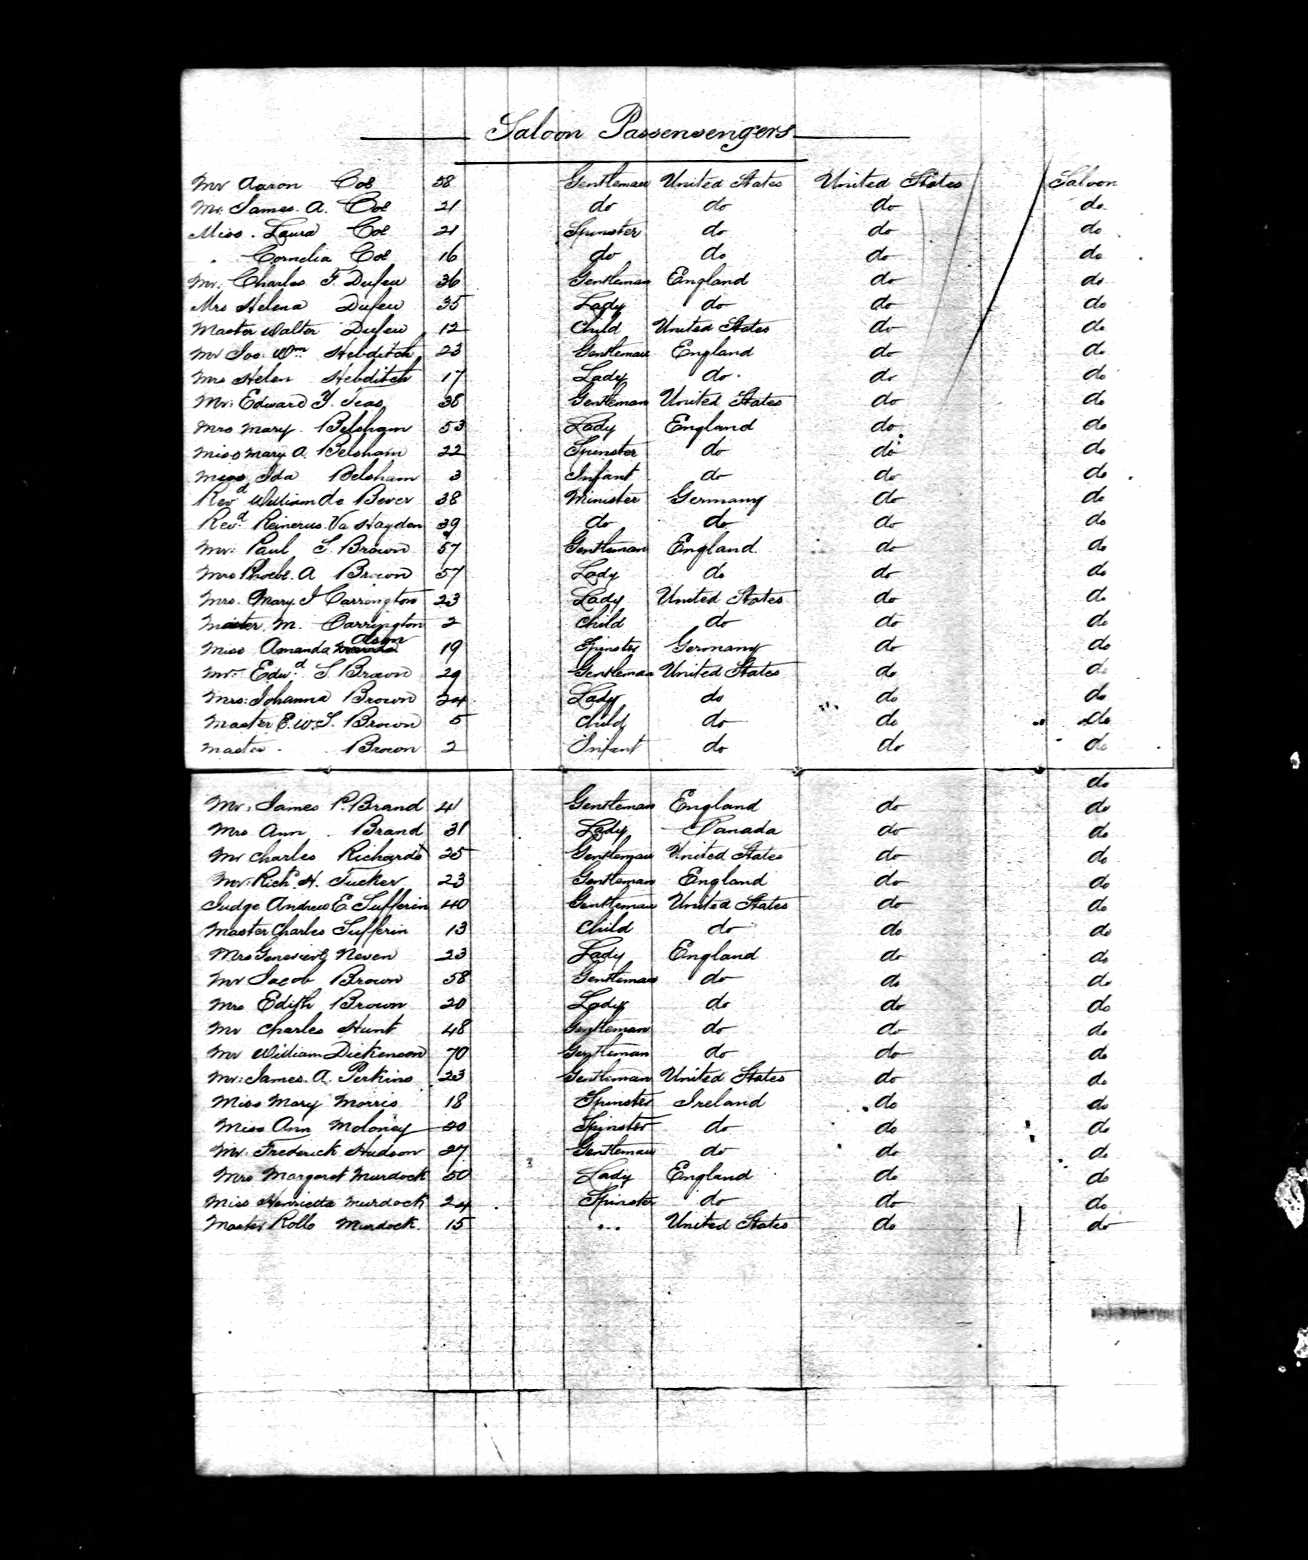 Saloon Passensengers
Mr Aaron Coe 58 Gentleman United States United States Saloon
Mr. James. A. Coe 21 do do do do
Miss. Laura Coe 21 Spinster do do do
" Cornelia Coe 16 do do do do
Mr. Charles F. Dufeu 36 Gentleman England do do
Mrs Helena Dufeu 35 Lady do do do
Master Walter Dufeu 12 Child United States do do
Mr Jos. Wm Hebditch 23 Gentleman England do do
Mrs Helen Hebditch 17 Lady do do do
Mr. Edward Y. 38 Gentleman United States do do
Mrs Mary Belsham 53 Lady England do do
Miss Mary A. Belsham 22 Spinster do do do
Miss Ida Belsham 3 Infant do do do
Revd William de Bever 38 Minister Germany do do
Revd. Reinerus. Va Hayden 39 do do do do
Mr. Paul S. Brown 57 Gentleman England do do
Mrs Phoebe. A Brown 57 Lady do do do
Mrs. Mary. J Carrington 23 Lady United States do do
Master M. Carrington 2 Child do do do
Miss Amanda 19 Spinster Germany do do
Mr. Edwd S Brown 29 Gentleman United States do do
Mrs. Johanna Brown 24 Lady do do do
Master E. W. S. Brown 5 Child do do do
Master Brown 2 Infant do do do
do
Mr. James P. Brand 41 Gentleman England do do
Mrs Ann Brand 31 Lady Canada do do
Mr Charles Richards 25 Gentleman United States do do
Mr. Richd H. Tucker 23 Gentleman England do do
Judge Andrew E. Sufferin 40 Gentleman United States do do
Master Charles Sufferin 13 Child do do do
Mrs Neven 23 Lady England do do
Mr Jacob Brown 58 Gentleman do do do
Mrs Edith Brown 20 Lady do do do
Mr Charles Hunt 48 Gentleman do do do
Mr William Dickenson 70 Gentleman do do do
Mr. James. A. Perkins 23 Gentleman United States do do
Miss Mary Morris 18 Spinster Ireland do do
Miss Ann Moloney 20 Spinster do do do
Mr. Frederick Hudson 27 Gentleman do do do
Mrs Margaret Murdock 50 Lady England do do
Miss Henrietta Murdock 24 Spinster do do do
Master Rollo Murdock 15 ... United States do do